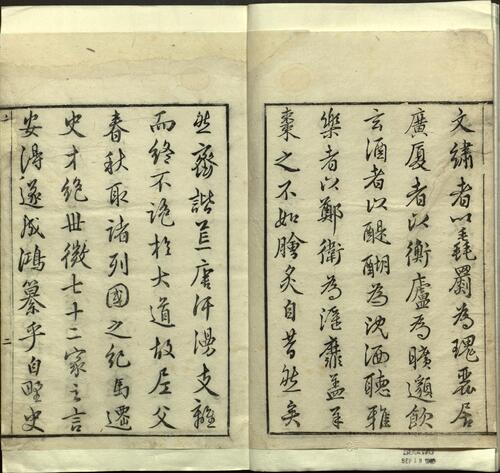 文繡者以毳罽為瑰麗居
廣厦者以衡廬為曠邈飲
玄酒者以醍醐為沈洒聽雅
樂者以鄭衛為淫靡蓋羊
棗之不如膾炙自昔然矣
然齊諧荒唐汗漫支離
而終不詭於大道故尼父
春秋取諸列國之紀馬遷
史才絕世徵七十二家之言
安得遂成鴻纂乎自野史
二
SEP 18